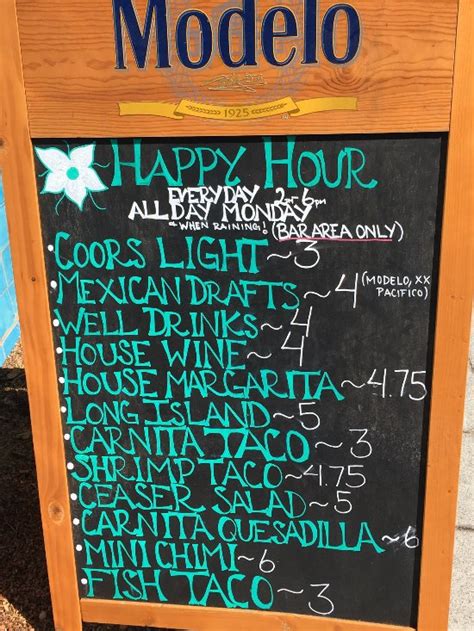 Modelo
1925
HAPPY HOUR
EVERYDAY 2pm-6pm
ALL DAY MONDAY
& WHEN RAINING! (BAR AREA ONLY)
• COORS LIGHT ~ 3
• MEXICAN DRAFTS ~ 4 (MODELO, XX PACIFICO)
• WELL DRINKS ~ 4
• HOUSE WINE ~ 4
• HOUSE MARGARITA ~ 4.75
• LONG ISLAND ~ 5
• CARNITA TACO ~ 3
• SHRIMP TACO ~ 4.75
• CEASER SALAD ~ 5
• CARNITA QUESADILLA ~ 6
• MINI CHIMI ~ 6
• FISH TACO ~ 3